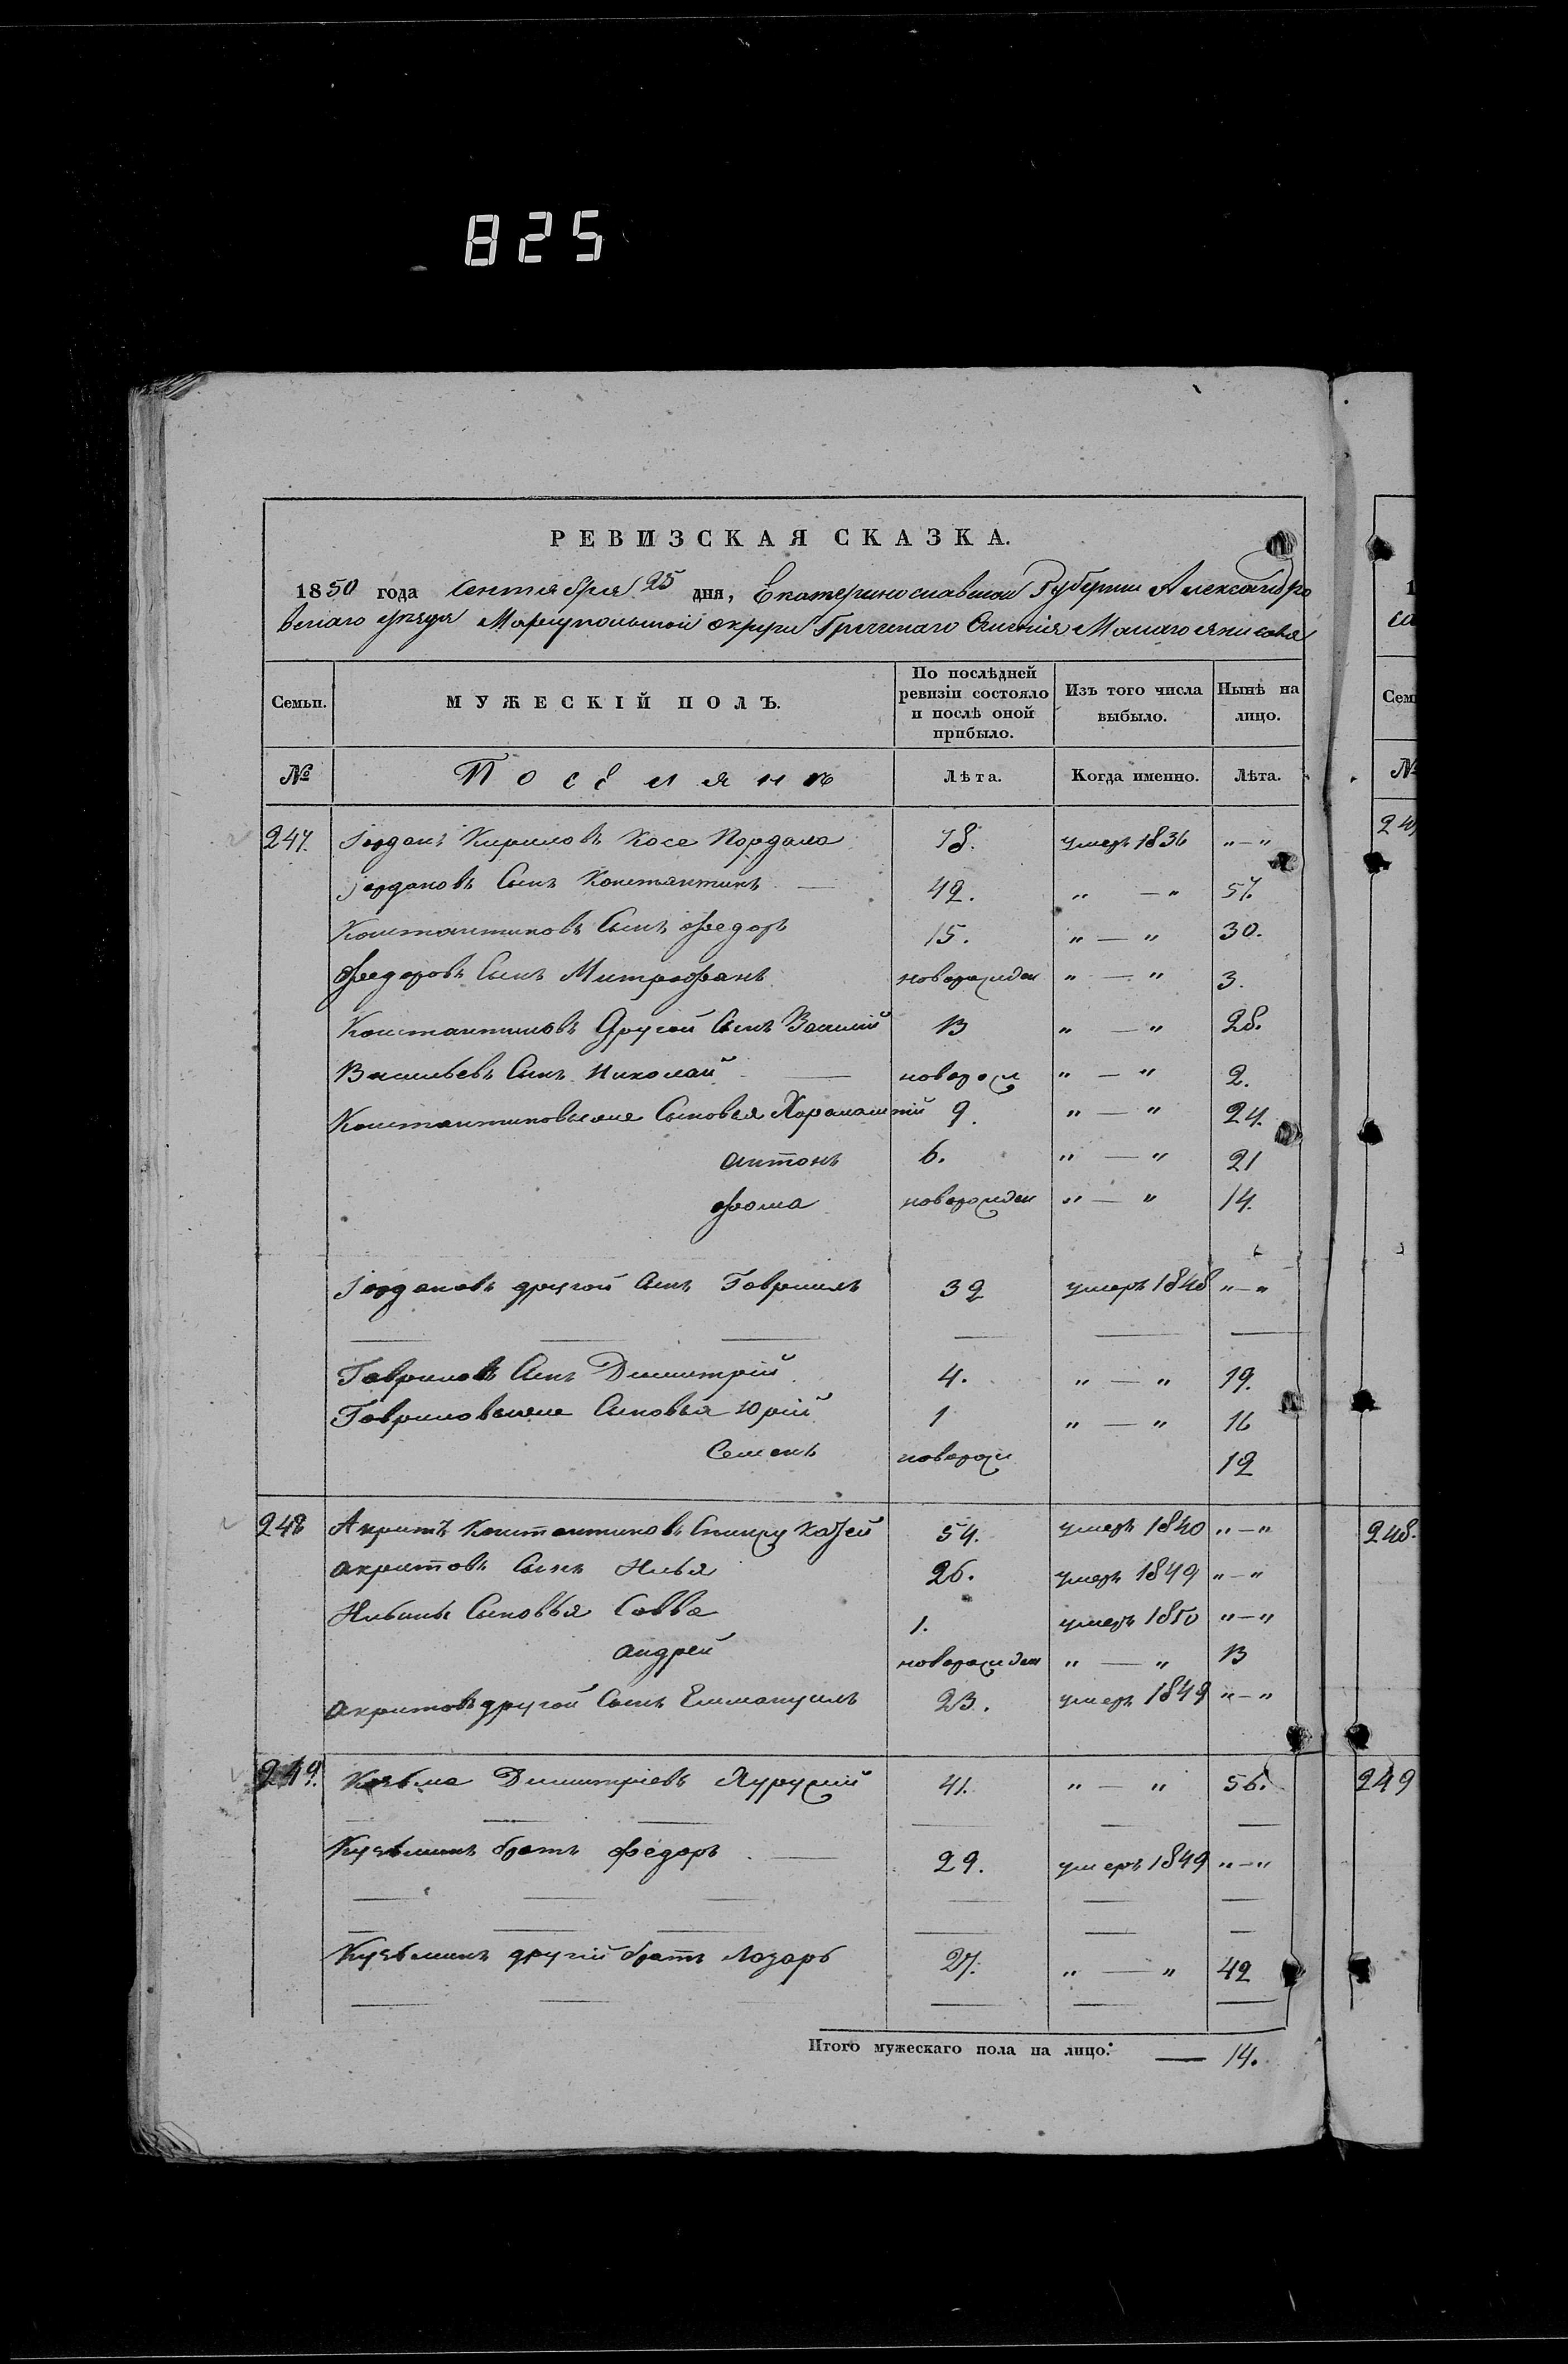 825
РЕВИЗСКАЯ СКАЗКА.
1850 года Сентября 25 дня, Екатеринославской Губерніи Александро
вскаго уѣзда Маріупольской округи Греческаго Селенія Малаго Янисоля
Семьи. МУЖЕСКІЙ ПОЛЪ. По послѣдней ревизіи состояло и послѣ оной прибыло. Изъ того числа выбыло. Нынѣ на лицо.
№ Поселянъ Лѣта. Когда именно. Лѣта.
247. Іорданъ Кириловъ Косе 78. умеръ 1836 „ — „
Іордановъ Сынъ Константинъ — 42. „ — „ 57.
Константиновъ Сынъ Федоръ 15. „ — „ 30.
Федоровъ Сынъ Митрофанъ новорожден „ — „ 3.
Константиновъ Другой Сынъ Василій 13 „ — „ 28.
Васильевъ Сынъ Николай — новорож „ — „ 2.
Константиновы Сыновья Харлампій 9. „ — „ 24.
Антонъ 6. „ — „ 21
Фома новорожден „ — „ 14.
Іордановъ другой Сынъ Гавріилъ 32 умеръ 1848 „ — „
Гавриловъ Сынъ Димитрій 4. „ — „ 19.
Гавриловы Сыновья Юрій 1 „ — „ 16
Семенъ новорож 12
248 Акритъ Константиновъ 54. умеръ 1840 „ — „ 248.
Акритовъ Сынъ Илья 26. умеръ 1849 „ — „
Ильины Сыновья Савва 1. умеръ 1850 „ — „
Андрей новорожден „ — „ 13
Акритовъ другой Сынъ Еммануилъ 23. умеръ 1849 „ — „
249. Козьма Димитріевъ 41. „ — „ 56. 249
Кузьминъ братъ Федоръ — 29. умеръ 1849 „ — „
Кузьминъ другій братъ Лазарь 27. „ — „ 42
Итого мужескаго пола на лицо: — 14.